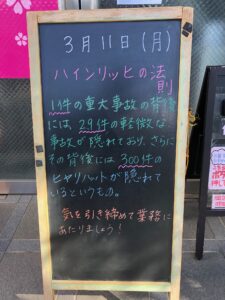 3月11日(月)
ハインリッヒの法
則
1件の重大事故の背後
には、29件の軽微な
事故が隠れており、さらに
その背後には300件の
ヒヤリハットが隠れて
いるというもの。
気を引き締めて業務に
あたりましょう!